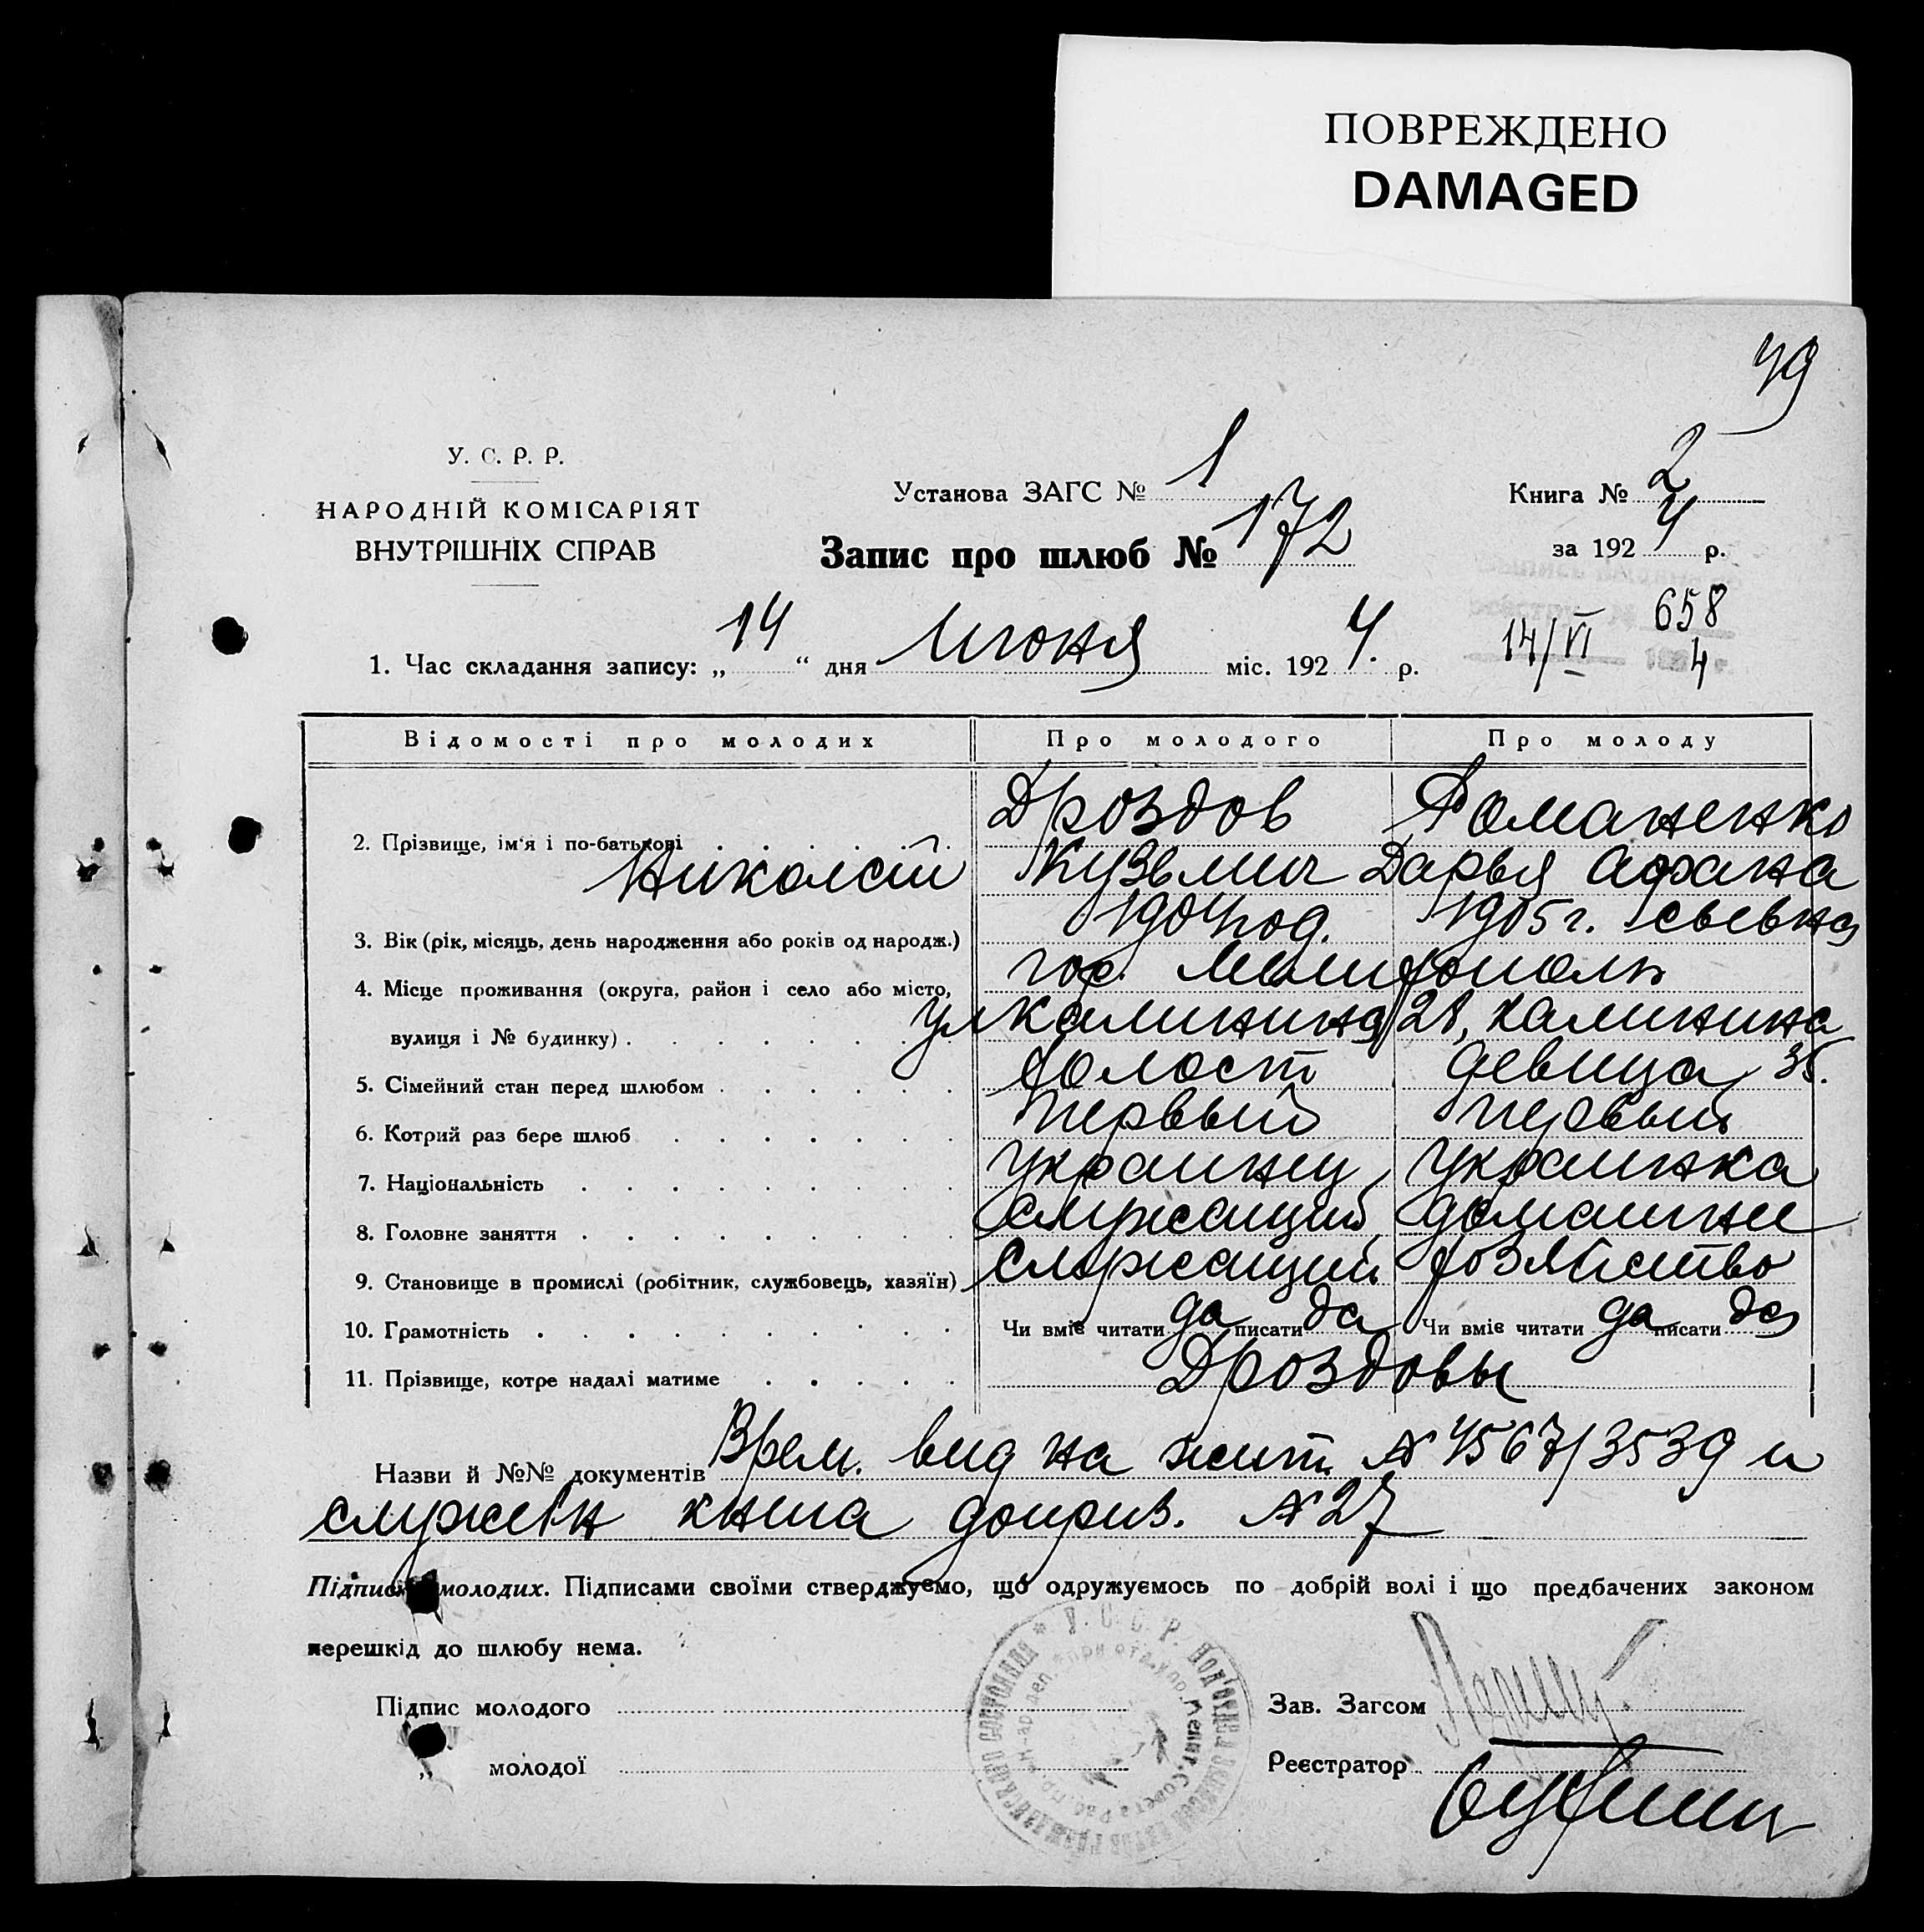 ПОВРЕЖДЕНО
DAMAGED
49
У. С. Р. Р.
НАРОДНІЙ КОМІСАРІЯТ
ВНУТРІШНІХ СПРАВ
Установа ЗАГС № 1
Запис про шлюб № 172
Книга № 2
за 1924 р.
1. Час складання запису: „14“ дня Июня міс. 1924. р.
658
14/VI 4
Відомості про молодих Про молодого Про молоду
Дроздов Романенко
2. Прізвище, ім'я і по-батькові
Николай Кузьмич Дарья Афана
3. Вік (рік, місяць, день народження або років од народж.) 1904 год. 1905 г. сьевна
4. Місце проживання (округа, район і село або місто, гор. Мелитополь
вулиця і № будинку) ул Калинина 28, Калинина
5. Сімейний стан перед шлюбом холост девица 35.
6. Котрий раз бере шлюб первый первый
7. Національність Украинец Украинка
8. Головне заняття служащий домашнее
9. Становище в промислі (робітник, службовець, хазяїн) Служащий хозяйство
10. Грамотність Чи вміє читати да писати да Чи вміє читати да писати да
11. Прізвище, котре надалі матиме Дроздовы
Назви й №№ документів Врем. вид на жит. № 4567/3539 и
служебн книга доприз. № 27
Підписи молодих. Підписами своїми стверджуємо, що одружуємось по добрій волі і що предбачених законом
перешкід до шлюбу нема.
Підпис молодого Зав. Загсом
„ молодої Реєстратор
У. С. С. Р.